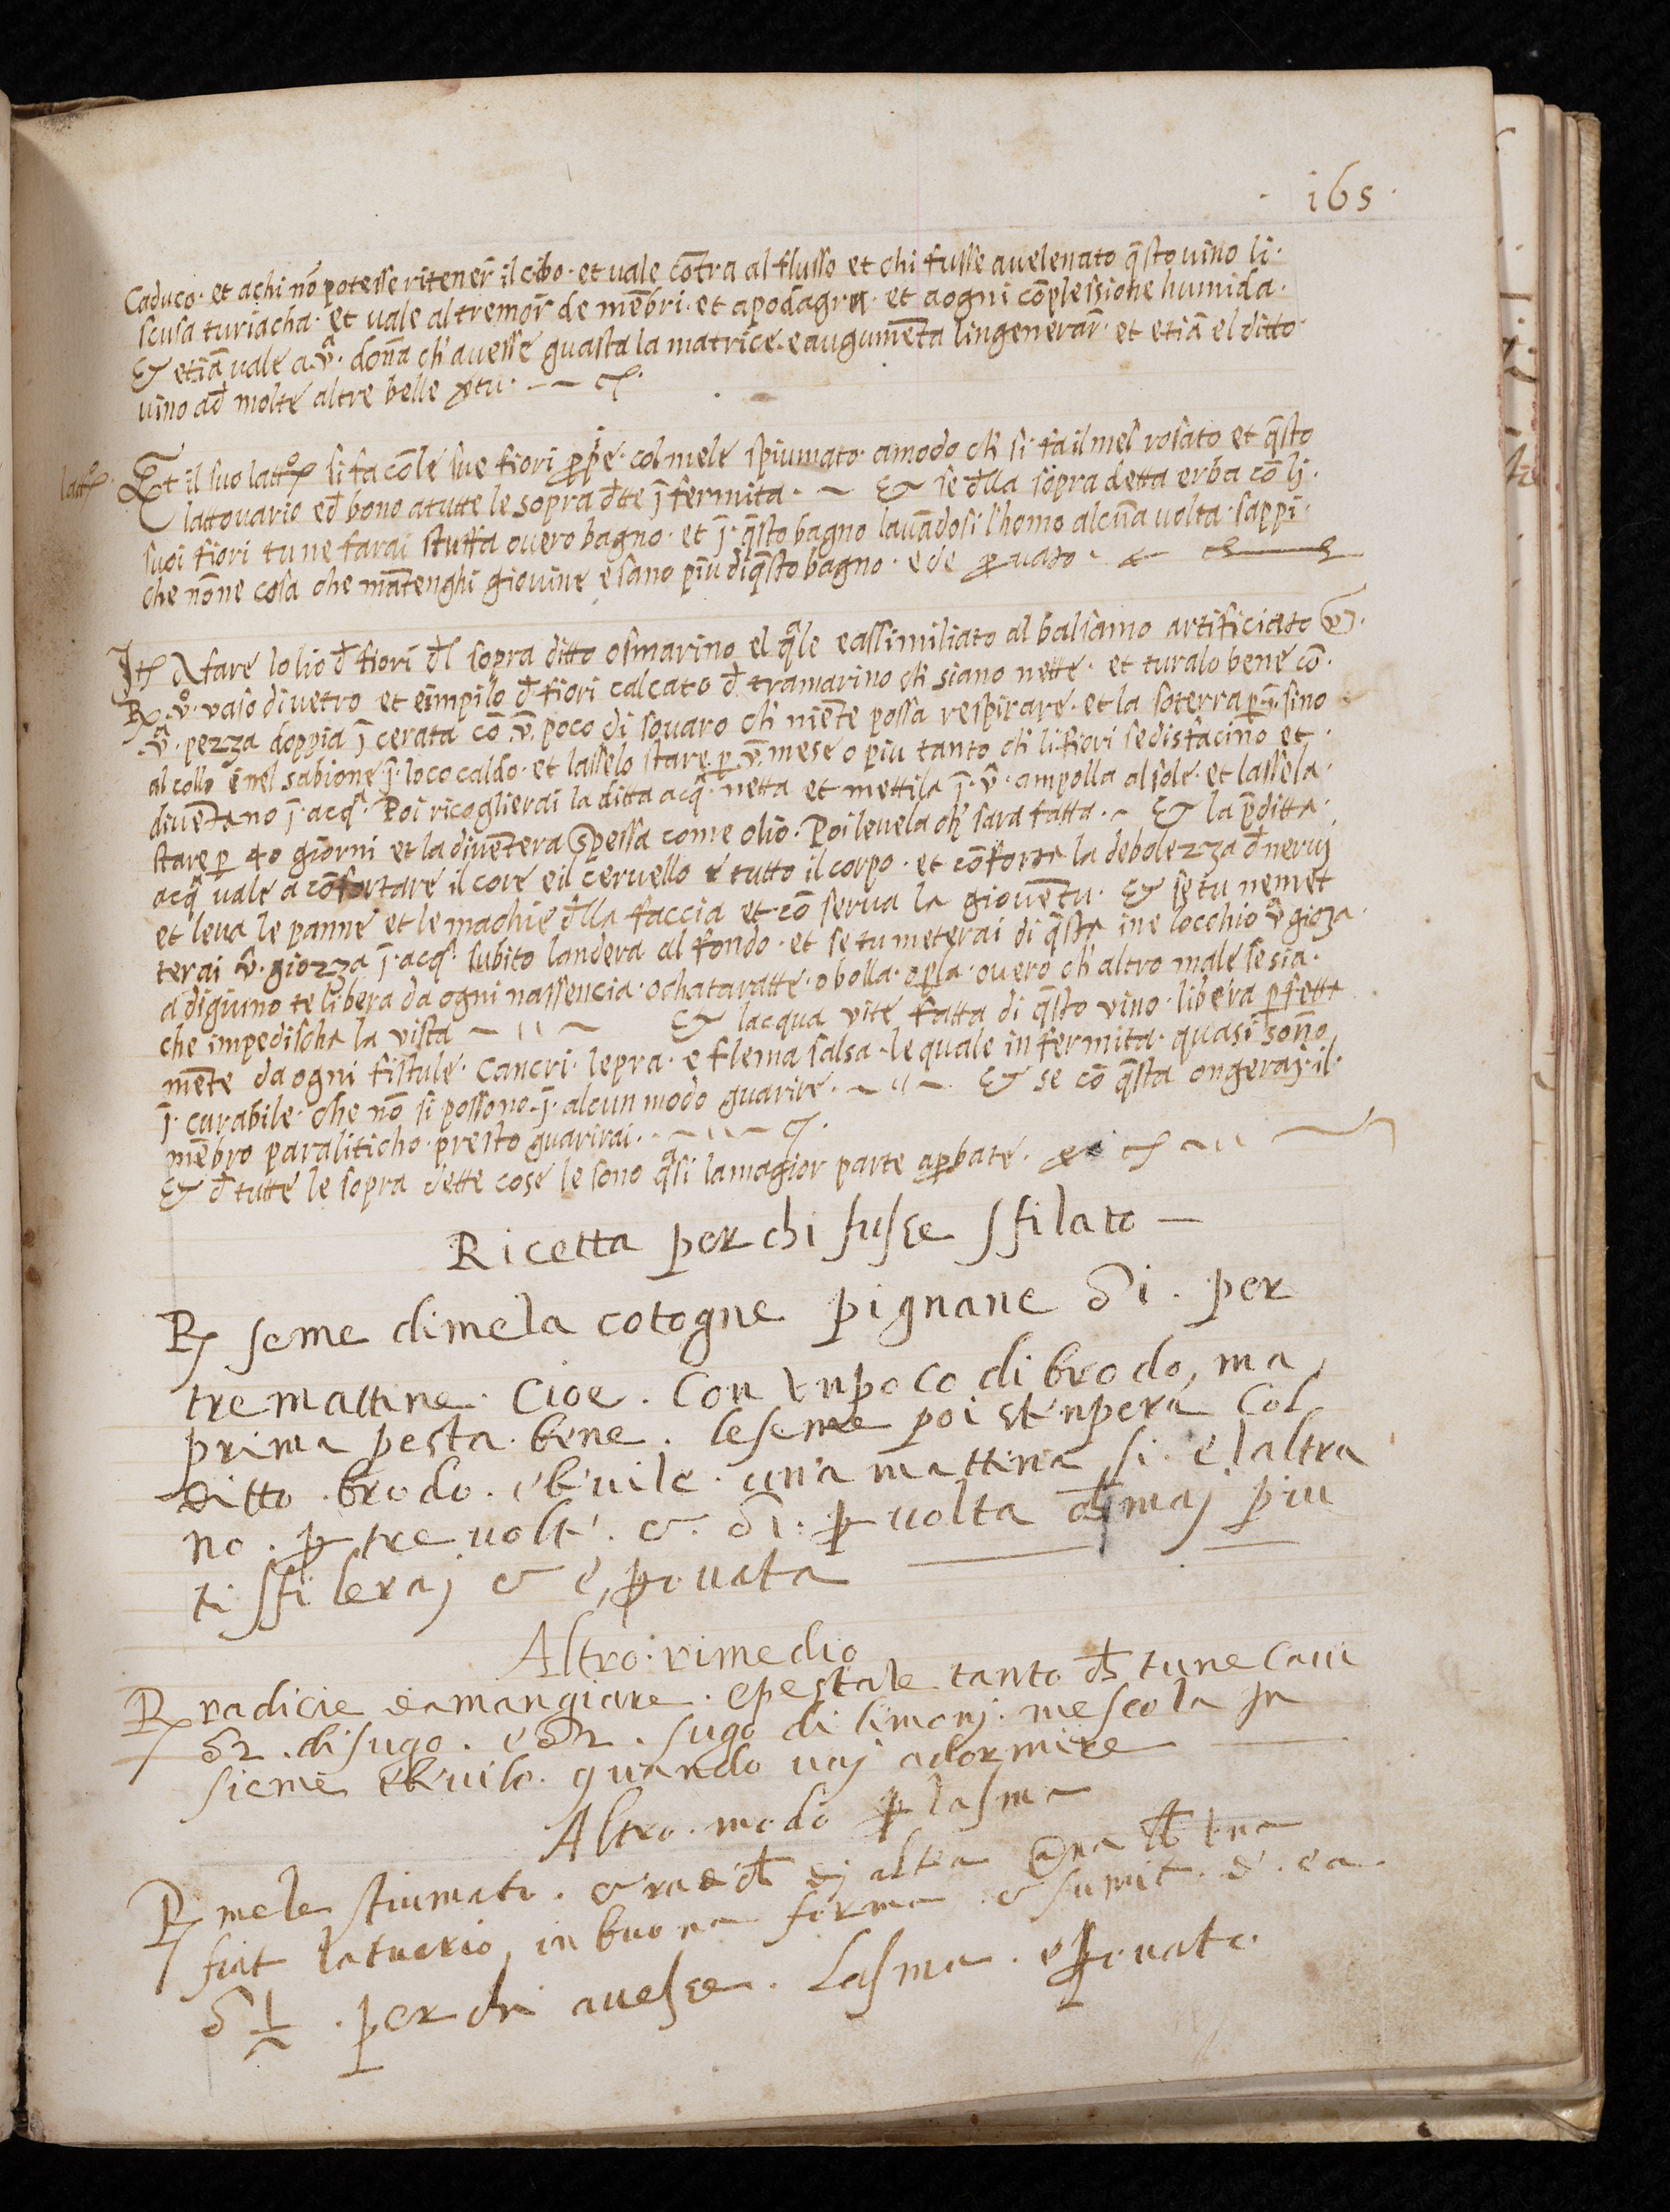 · i6s ·
Caduco · et achi nō potesse ritener̄ il cibo · et uale cōtra al flusso et chi fusse auelenato q̄sto uino li ·
scusa turiacha · et uale al tremor̄ de mēbri · et apodagra · et aogni cōplessione humida ·
Et etiā uale a ū · dona ch' auesse guasta la matrice · e augumēta lingenerar̄ · et etiā el ditto
uino ad molte altre belle
latt
Et il suo latt si fa cō le sue fiori col mele spiumato · amodo ch' si fa il mel rosato et q̄sto
lattouario ed bono atutte le sopra dtte ī fermita · ~ Et se dlla sopra detta erba cō li ·
suoi fiori tu ne farai stuffa ouero bagno · et ī · q̄sto bagno lauādosi l'homo alcūa uolta · sappi ·
che nō ne cosa che mātenghi giouine e sano piu di q̄sto bagno · e de p uato ·
Itē A fare lolio d fiori dl sopra ditto osmarino el q̄le e assimiliato al balsamo artificiato
℞ · ū · uaso di uetro et eimpilo d fiori calcato d tramarino ch' siano nette · et turalo bene cō ·
ū · pezza doppia ī cerata cō ū · poco di souaro ch' niente possa respirare · et la soterra p · ī · sino
al collo e nel sabione ī · loco caldo · et lasselo stare p ū mese o piu tanto ch' li fiori se disfacino et ·
diuētano ī · acq̄ · Poi ricoglierai la ditta acq̄ · netta et mettila ī · ū · ampolla al sole · et lassela ·
stare p 40 giorni et la diuētera spessa come olio · Poi leuela ch' sara fatta · ~ Et la p̄ditta ·
acq̄ uale a cōfortare il core e il ceruello e tutto il corpo · et cōforta la debolezza d nerui
et leua le panne et le machie dlla faccia et cō serua la giouētu · Et se tu nemet
terai ū · giozza ī · acq̄ · subito landera al fondo · et se tu meterai di q̄sta ine locchio ū gioza ·
a digiuno te libera da ogni nassencia · o chataratte · o bolla · o pla · ouero ch' altro male se sia ·
che impedischa la uista ~ ·· ~ Et lacqua uite fatta di q̄sto uino · libera p fetta
mēte da ogni fistule · Cancri · lepra · e flema salsa · le quale in fermita · quasi sono
ī · curabile · che nō si possono · ī · alcun modo guarire · ~ ·· ~ Et se cō q̄sta ongerai · il ·
mēbro paraliticho · presto guarirai ·
Et d tutte le sopra dette cose le sono q̄si lamagior parte ap̄bate ·
Ricetta per chi fusse sfilato —
℞ seme dimela cotogne pignane ʒ i · per
tre mattine · Cioe · Con un poco di brodo, ma
prima pesta · bene · le seme poi stenpera col
ditto · brodo · e beuile · una mattina si · e laltra
no · p tre uolte · & · ʒ i · p uolta ch maj piu
ti sfileraj & e, p uata
Altro · rimedio
℞ radicie da mangiare · e pestale tanto ch tu ne caui
ʒ 2 · di sugo · e ʒ 2 · sugo di limonj · mescola in
sieme e beuilo · quando uaj adormire
Altro · modo p lasma
℞ mele stiumato · & radch dj altea ana lb una
fiat latuario in buona forma & sumit · e · da
ʒ 1/2 · per chi auesse · Lasma · e p uato ·